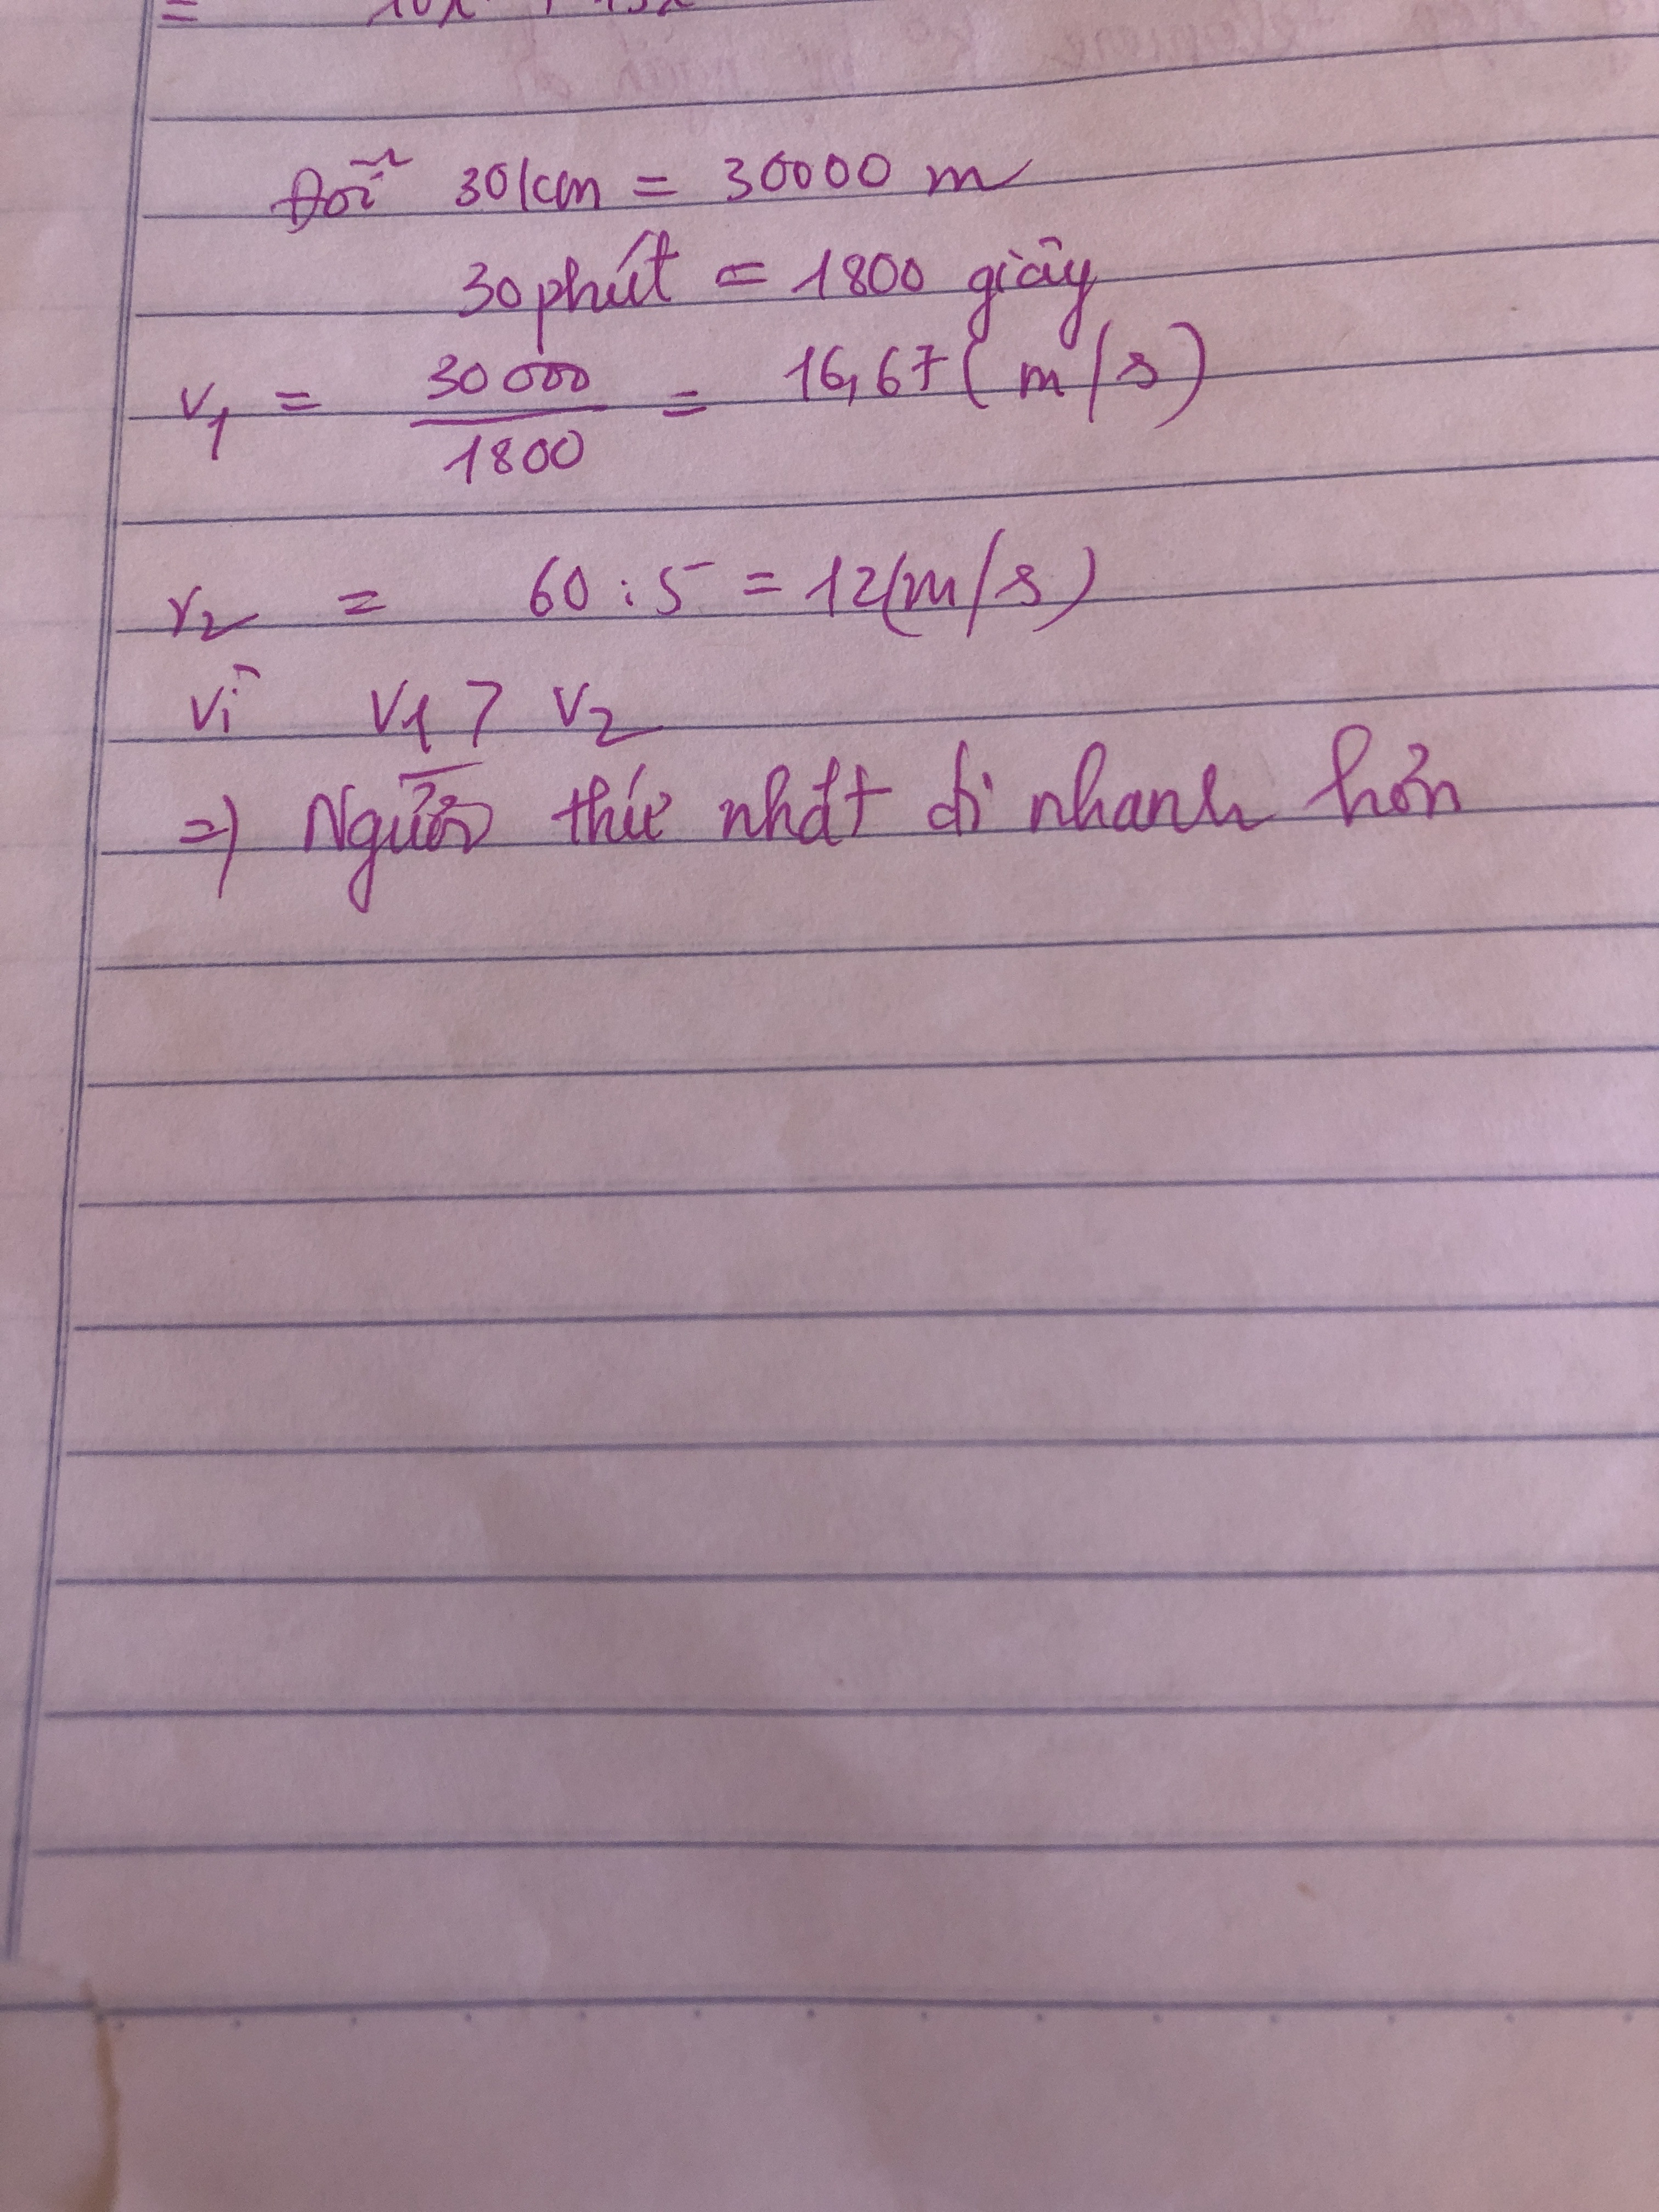 Đổi 30km = 30000 m
30 phút = 1800 giây
v1 = 30000/1800 = 16,67 (m/s)
v2 = 60 : 5 = 12 (m/s)
vì v1 > v2
=> Người thứ nhất đi nhanh hơn